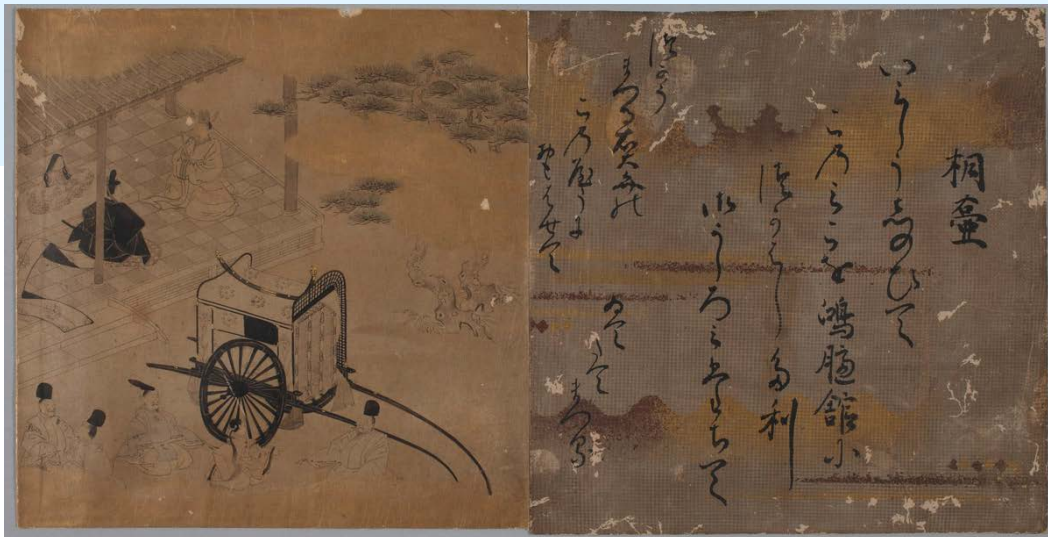 桐壺
いみしうしのひて
このみこを鴻臚館に
つかはしたり
御うしろみたちて
つかう
まつる右大弁の
このやうに
おもはせて
ゐて
たて
まつる